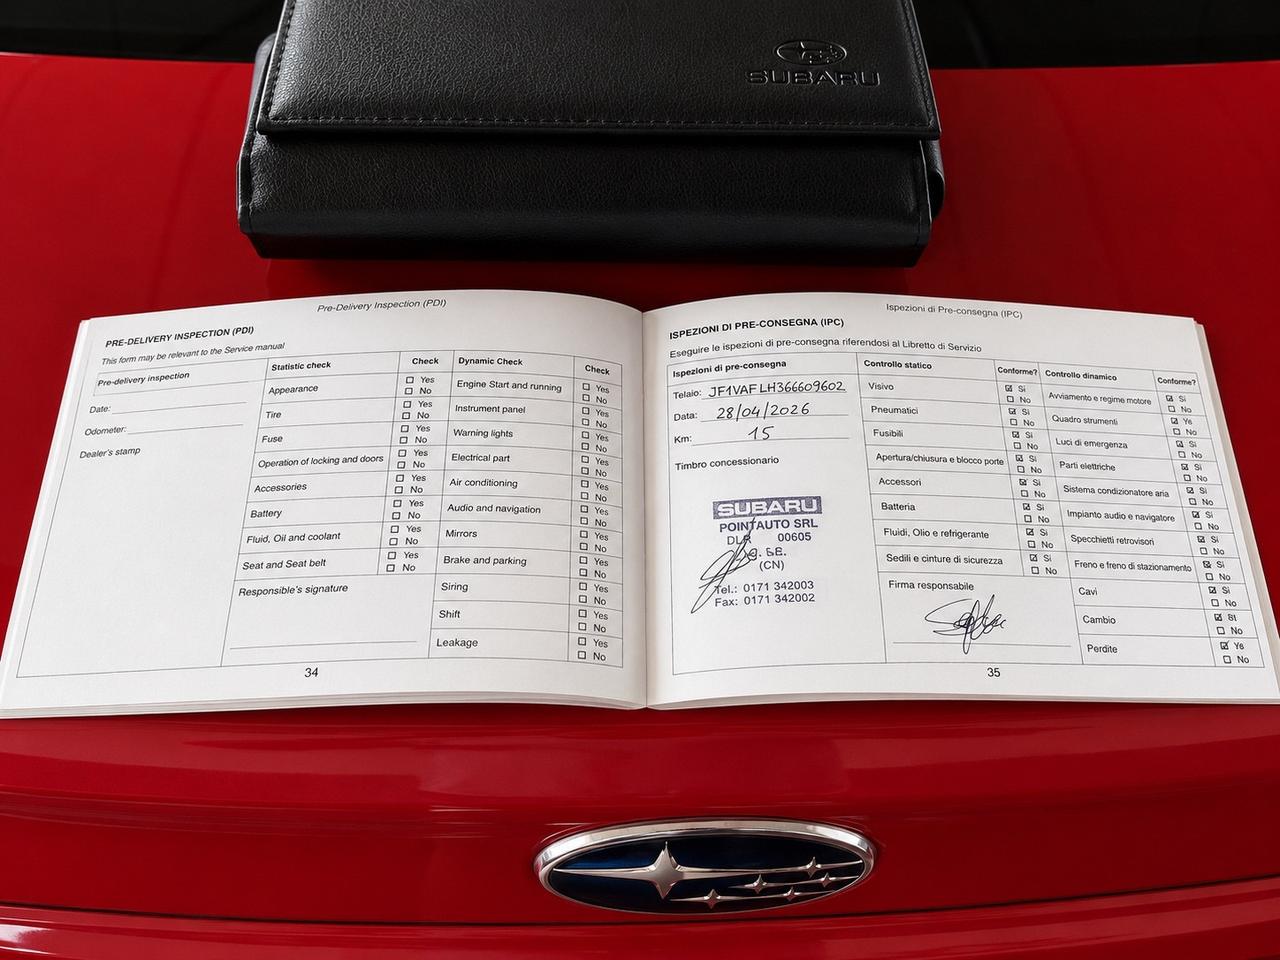 SUBARU
Pre-Delivery Inspection (PDI)
PRE-DELIVERY INSPECTION (PDI)
This form may be relevant to the Service manual
Pre-delivery inspection
Date:
Odometer:
Dealer's stamp
Statistic check
Check
Appearance
Yes
No
Tire
Yes
No
Fuse
Yes
No
Operation of locking and doors
Yes
No
Accessories
Yes
No
Battery
Yes
No
Fluid, Oil and coolant
Yes
No
Seat and Seat belt
Yes
No
Responsible's signature
Dynamic Check
Check
Engine Start and running
Yes
No
Instrument panel
Yes
No
Warning lights
Yes
No
Electrical part
Yes
No
Air conditioning
Yes
No
Audio and navigation
Yes
No
Mirrors
Yes
No
Brake and parking
Yes
No
Siring
Yes
No
Shift
Yes
No
Leakage
Yes
No
34
Ispezioni di Pre-consegna (IPC)
ISPEZIONI DI PRE-CONSEGNA (IPC)
Eseguire le ispezioni di pre-consegna riferendosi al Libretto di Servizio
Ispezioni di pre-consegna
Telaio: JF1VAFLH366609602
Data: 28/04/2026
Km: 15
Timbro concessionario
SUBARU
POINTAUTO SRL
00605
(CN)
Tel.: 0171 342003
Fax: 0171 342002
Controllo statico
Conforme?
Visivo
Si
No
Pneumatici
Si
No
Fusibili
Si
No
Apertura/chiusura e blocco porte
Si
No
Accessori
Si
No
Batteria
Si
No
Fluidi, Olio e refrigerante
Si
No
Sedili e cinture di sicurezza
Si
No
Firma responsabile
Controllo dinamico
Conforme?
Avviamento e regime motore
Si
No
Quadro strumenti
Ye
No
Luci di emergenza
Si
No
Parti elettriche
Si
No
Sistema condizionatore aria
Si
No
Impianto audio e navigatore
Si
No
Specchietti retrovisori
Si
No
Freno e freno di stazionamento
Si
No
Cavi
Si
No
Cambio
No
Perdite
Ye
No
35